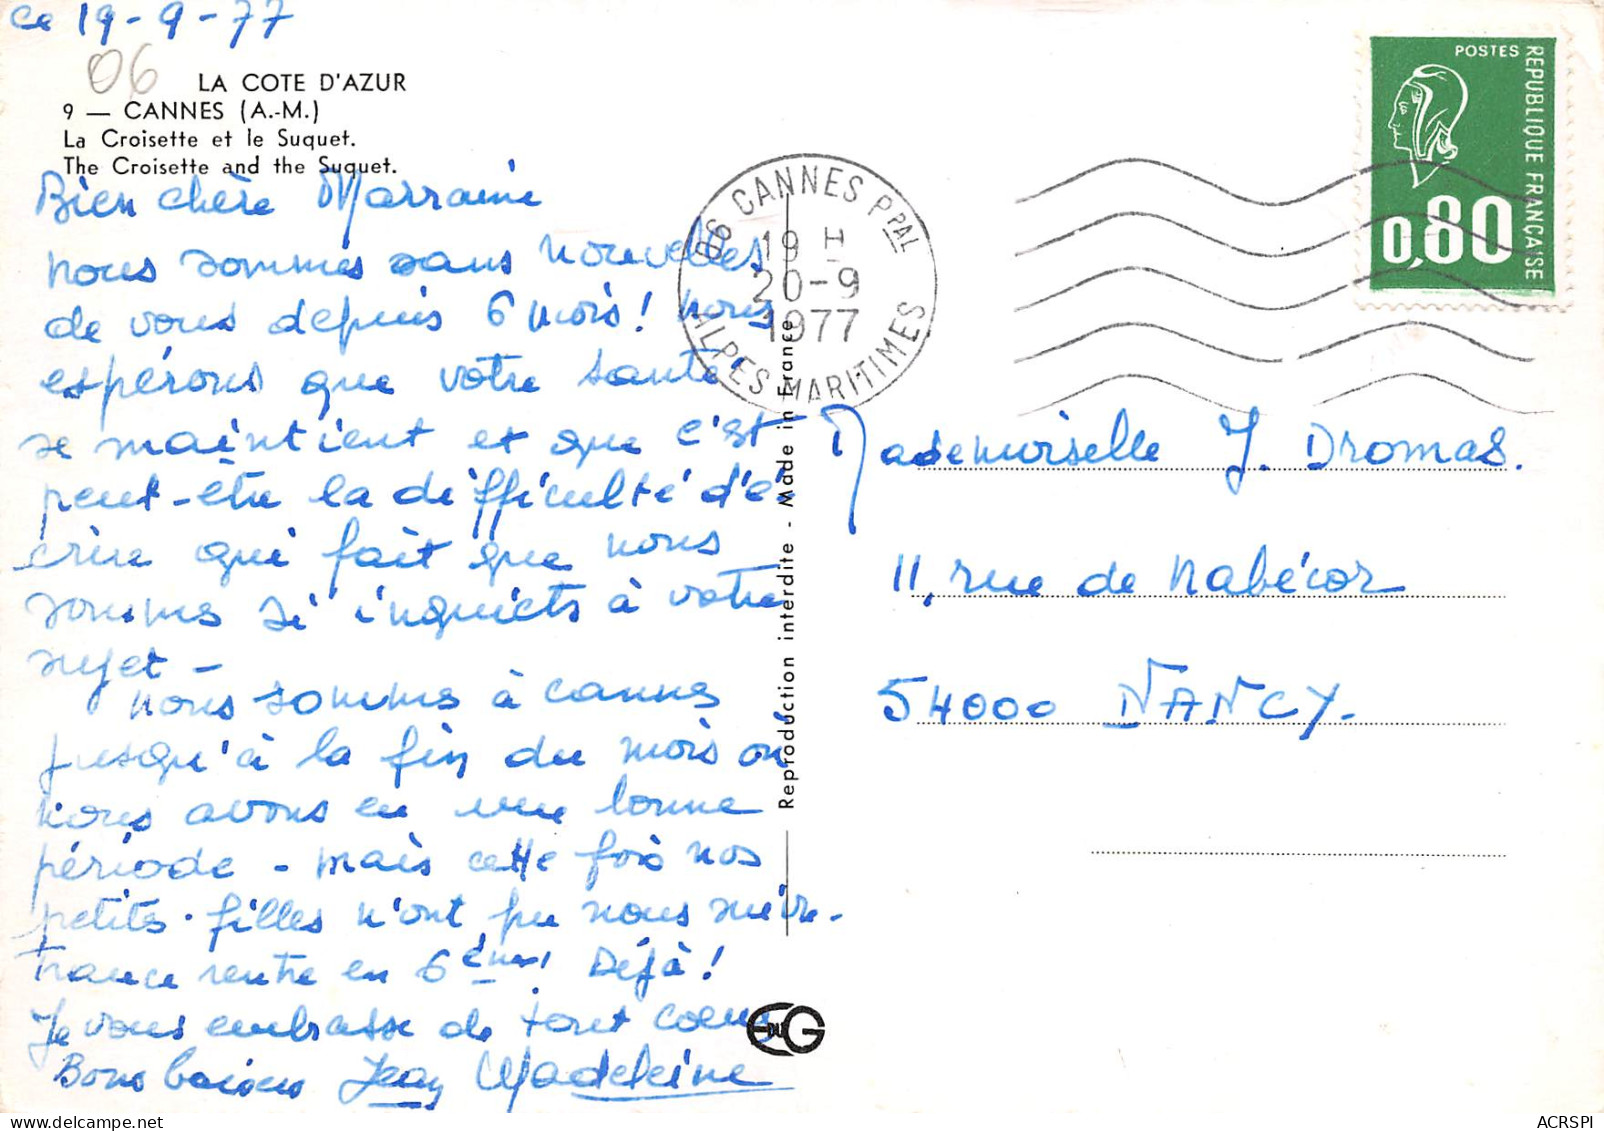 ce 19-9-77
06
LA COTE D'AZUR
9 — CANNES (A.-M.)
La Croisette et le Suquet.
The Croisette and the Suquet.
Bien chère Marraine
nous sommes sans nouvelles
de vous depuis 6 mois ! nous
espérons que votre santé
se maintient et que c'est
peut-être la difficulté d'é-
crire qui fait que nous
sommes si inquiets à votre
sujet -
nous sommes à cannes
jusqu'à la fin du mois on
nous avons eu une bonne
période - mais cette fois nos
petits-filles n'ont pu nous suivre -
France rentre en 6ème ! Déjà !
Je vous embrasse de tout coeur
Bons baisers Jean Madeleine
06 CANNES PPAL
19 H
20-9
1977
ALPES MARITIMES
Reproduction interdite - Made in France
EDUG
POSTES
REPUBLIQUE FRANÇAISE
0,80
Mademoiselle J. Dromas.
11, rue de Nabécor
54000 NANCY.
ACRSPI